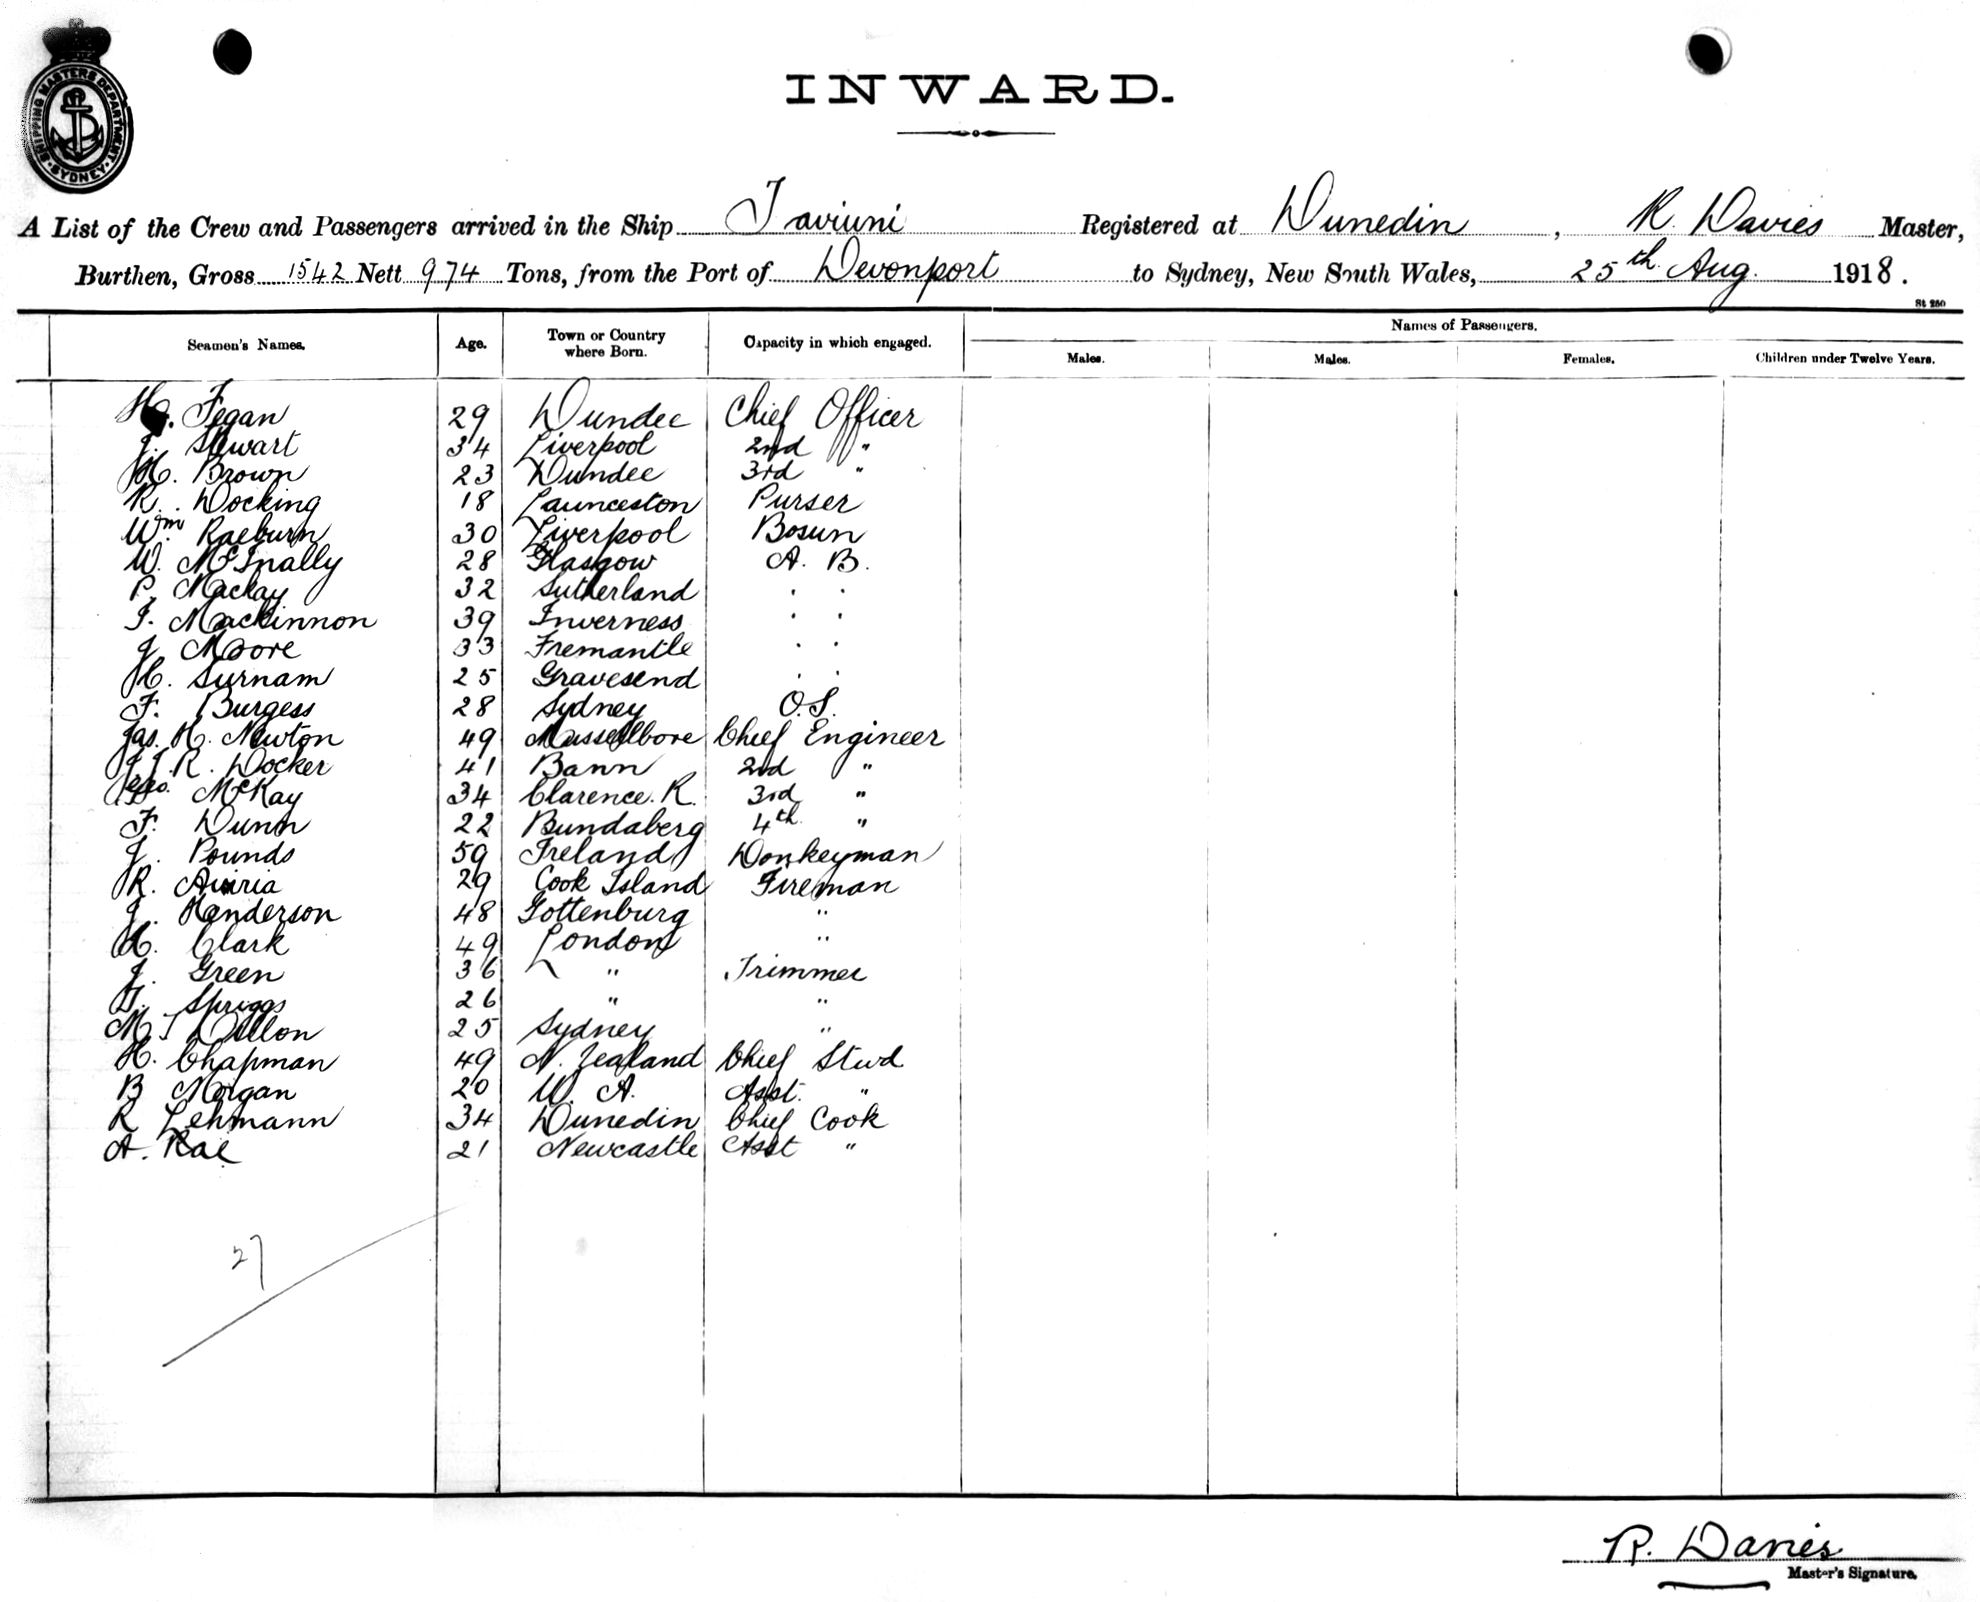 SHIPPING MASTERS DEPARTMENT
SYDNEY
INWARD.
A List of the Crew and Passengers arrived in the Ship Taviuni Registered at Dunedin, R. Davies Master,
Burthen, Gross 1542 Nett 974 Tons, from the Port of Devonport to Sydney, New South Wales, 25th Aug. 1918.
St 250
Seamen's Names. Age. Town or Country where Born. Capacity in which engaged. Names of Passengers.
Males. Males. Females. Children under Twelve Years.
H. Fegan 29 Dundee Chief Officer
J. Stewart 34 Liverpool 2nd "
H. Brown 23 Dundee 3rd "
R. Docking 18 Launceston Purser
Wm. Raeburn 30 Liverpool Bosun
W. McInally 28 Glasgow A. B.
P. Mackay 32 Sutherland . .
J. Mackinnon 39 Inverness . .
J Moore 33 Fremantle . .
H. Surnam 25 Gravesend . .
F. Burgess 28 Sydney O.S.
Jas. H. Newton 49 Chief Engineer
J J. R. Docker 41 Bann 2nd "
Geo. McKay 34 Clarence. R. 3rd "
F. Dunn 22 Bundaberg 4th "
J. Pounds 59 Ireland Donkeyman
R. 29 Cook Island Fireman
J. Henderson 48 Gottenburg "
H. Clark 49 London "
J. Green 36 " Trimmer
Spriggs 26 " "
M. J Dillon 25 Sydney "
H. Chapman 49 N. Zealand Chief Stwd
B Morgan 20 W. A. Asst. "
R Lehmann 34 Dunedin Chief Cook
A. Rae 21 Newcastle Asst "
27
R. Davies
Master's Signature.